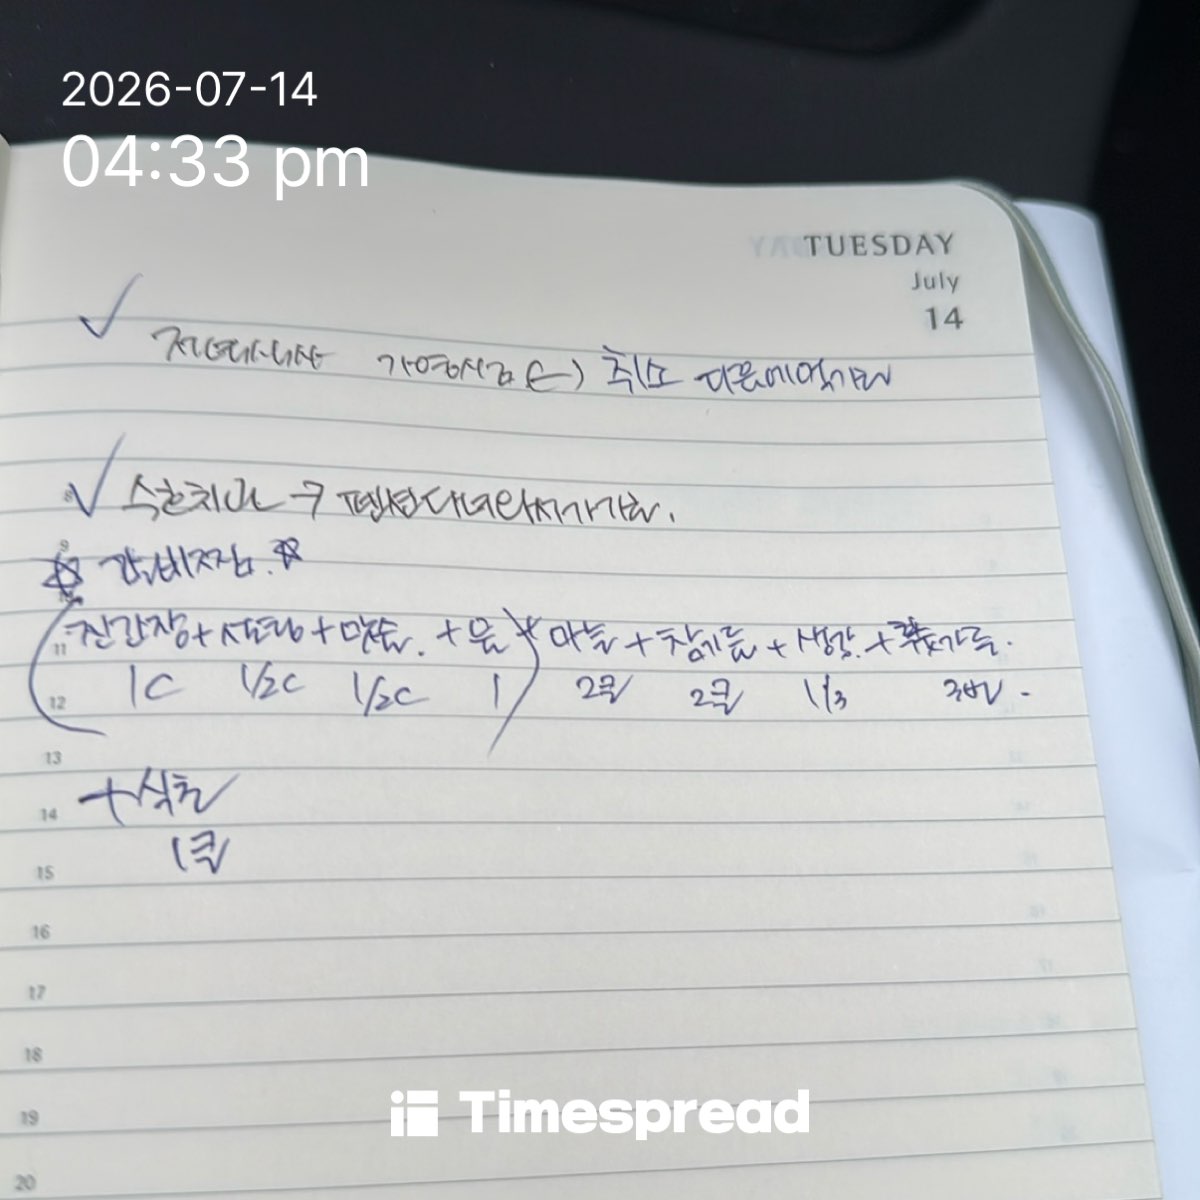 2026-07-14
04:33 pm
TUESDAY
July
14
저녁식사 가영시김 (-) 취소 다음에먹기로
8 수환치과 →
9 갈비찜.
11 진간장 + 설탕 + 맛술. + 물 + 마늘 + 참기름 + 생강. + 후춧가루.
12 1C 1/2C 1/2C 1 2큰 2큰 1/3
13
14 +식초
15 1큰
16
17
18
19
20
Timespread